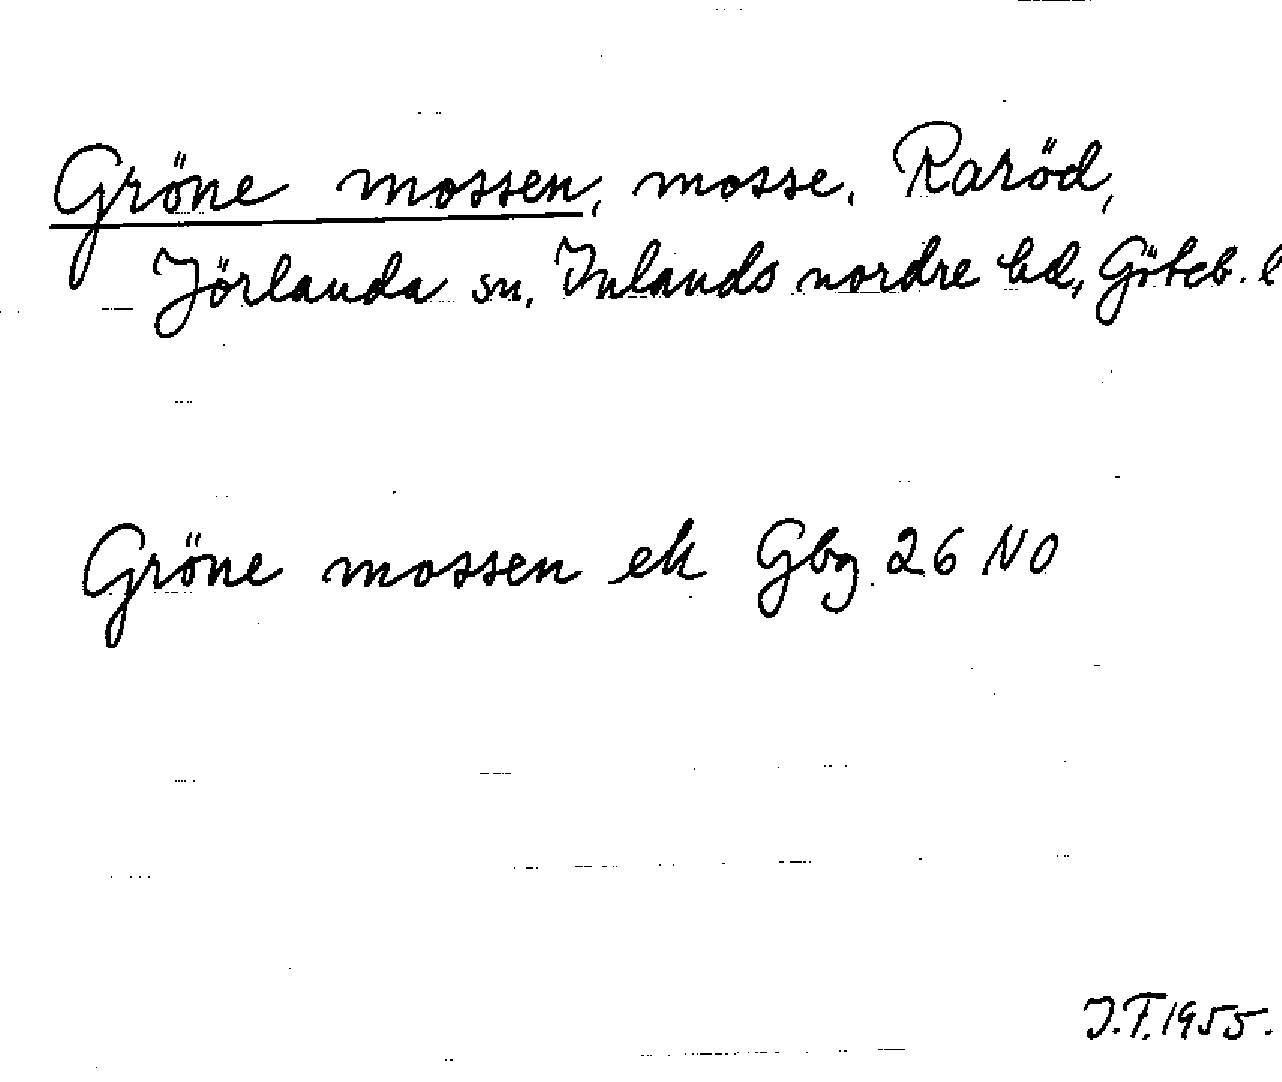 Gröne mossen, mosse. Raröd,
Jörlanda sn, Inlands nordre hd, Göteb. l
Gröne mossen ek Gbg 26 NO
J.F. 1955.